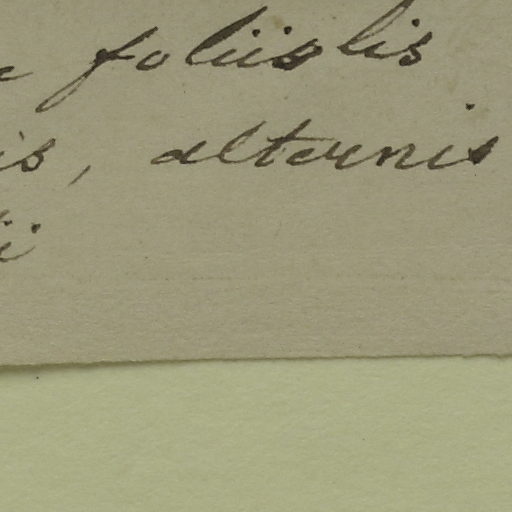 foliislis
is, alternis
ii